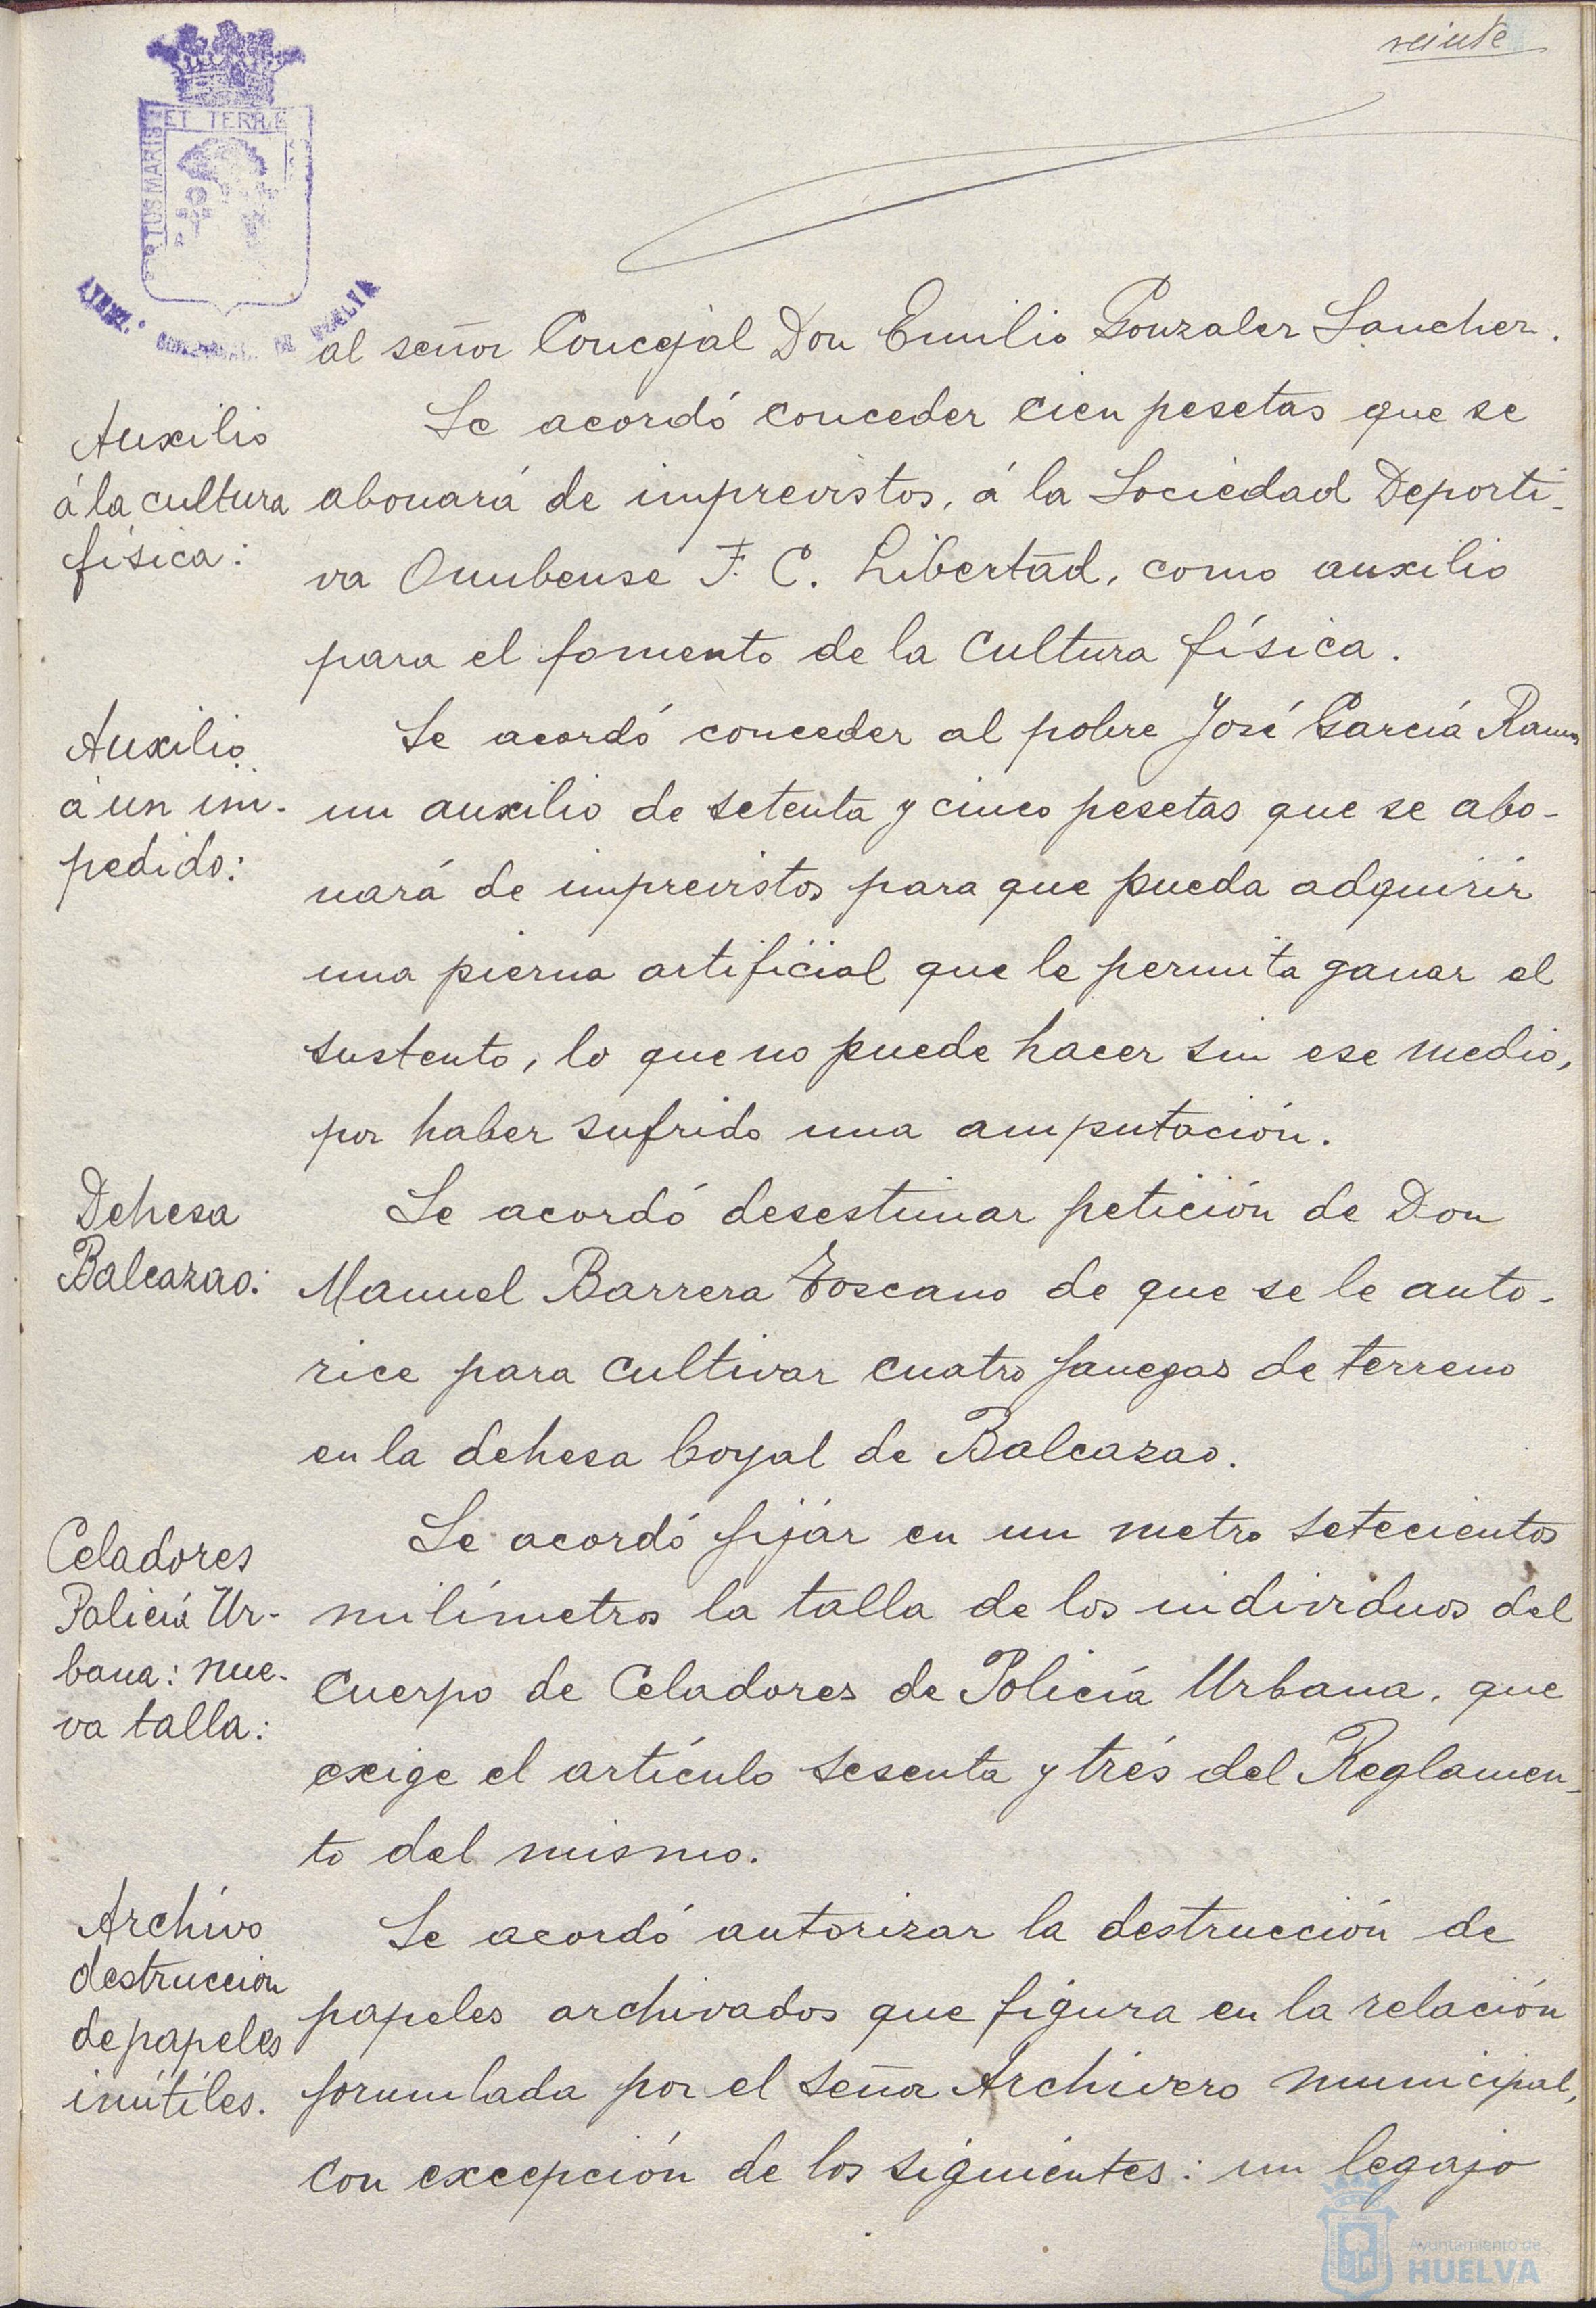 veinte
ET TERRÆ
TUS MARIS
AYUNT.º DE HUELVA
al señor Concejal Don Emilio Gonzalez Sanchez.
Auxilio
á la cultura
física:
Se acordó conceder cien pesetas que se
abonará de imprevistos, á la Sociedad Deporti-
va Onubense F. C. Libertad, como auxilio
para el fomento de la cultura física.
Auxilio
á un im-
pedido:
Se acordó conceder al pobre José García Ramos
un auxilio de setenta y cinco pesetas que se abo-
nará de imprevistos para que pueda adquirir
una pierna artificial que le permita ganar el
sustento, lo que no puede hacer sin ese medio,
por haber sufrido una amputación.
Dehesa
Balcazao:
Se acordó desestimar petición de Don
Manuel Barrera Toscano de que se le auto-
rice para cultivar cuatro fanegas de terreno
en la dehesa boyal de Balcazao.
Celadores
Policía Ur-
bana: nue-
va talla:
Se acordó fijár en un metro setecientos
milímetros la talla de los individuos del
Cuerpo de Celadores de Policía Urbana, que
exige el artículo sesenta y trés del Reglamen-
to del mismo.
Archivo
destruccion
de papeles
inútiles.
Se acordó autorizar la destrucción de
papeles archivados que figura en la relación
formulada por el señor Archivero municipal,
con excepción de los siguientes: un legajo
Ayuntamiento de
HUELVA